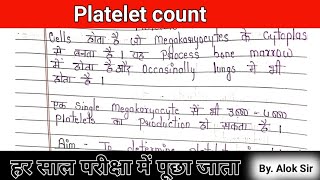 Platelet count
Cells होता है जो Megakaryocytes के Cytoplas
से बनता है । यह Process bone marrow
में होता है और Occasinally lungs में भी
होता है ।
एक Single Megakaryocyte से भी 3000 - 4000
Platelets का Production हो सकता है ।
Aim - To determine platelet
हर साल परीक्षा में पूछा जाता
By. Alok Sir